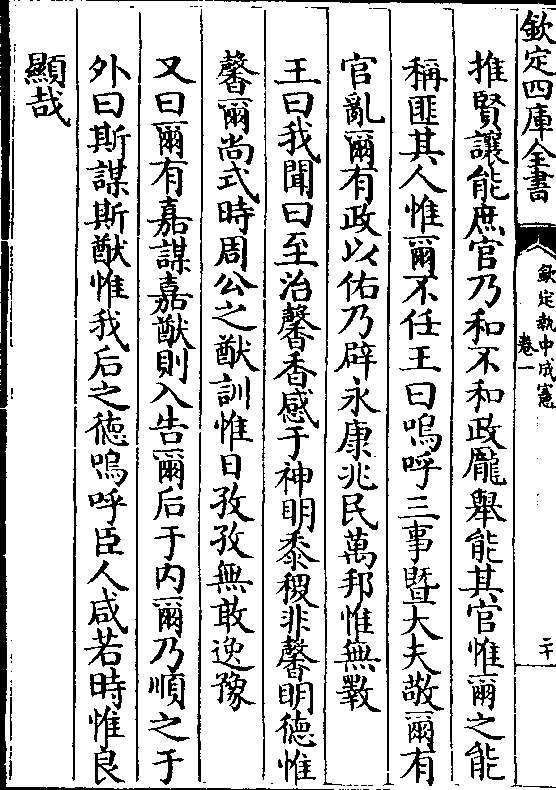 欽定四庫全書
欽定執中成憲
卷一
二十
推賢讓能庶官乃和不和政厖舉能其官惟爾之能
稱匪其人惟爾不任王曰嗚呼三事暨大夫敬爾有
官亂爾有政以佑乃辟永康兆民萬邦惟無斁
王曰我聞曰至治馨香感于神明黍稷非馨明德惟
馨爾尚式時周公之猷訓惟日孜孜無敢逸豫
又曰爾有嘉謀嘉猷則入告爾后于内爾乃順之于
外曰斯謀斯猷惟我后之德嗚呼臣人咸若時惟良
顯哉